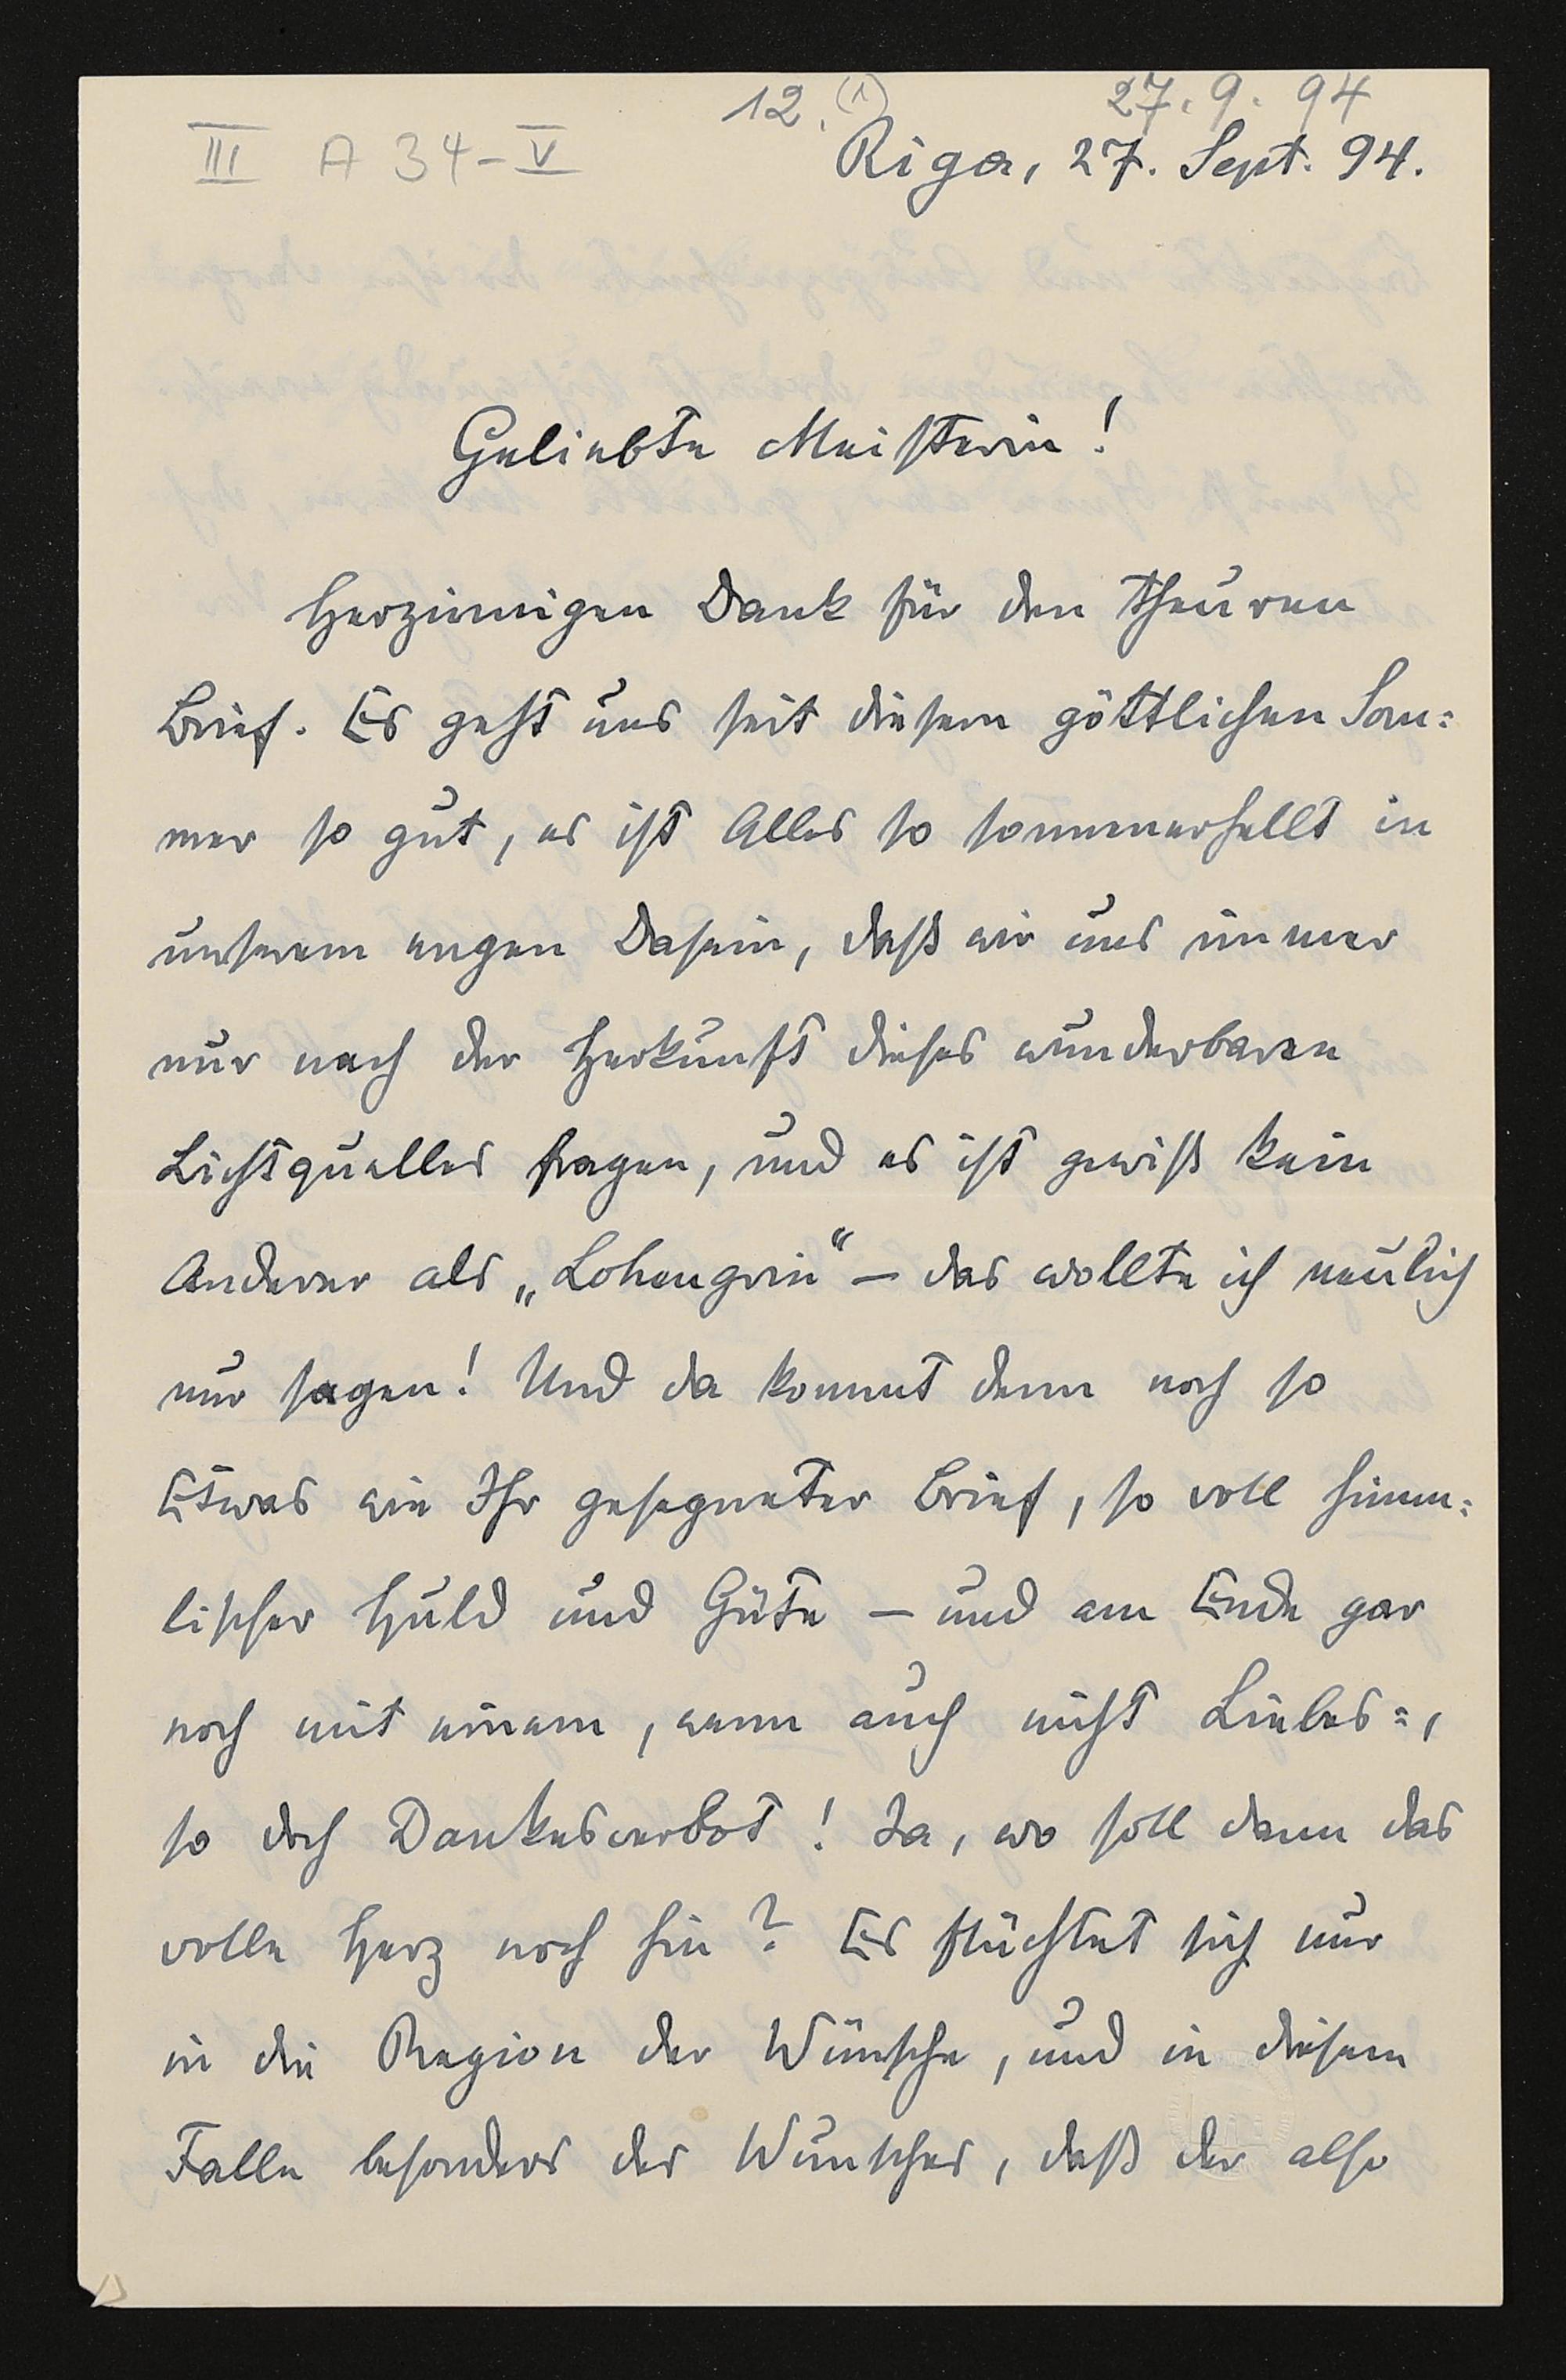 12. (1) 27. 9. 94
III A 34-V
Riga, 27. Sept. 94.
Geliebte Meisterin!
Herzinnigen Dank für den theuren
Brief. Es geht uns seit diesem göttlichen Som=
mer so gut, es ist Alles so sonnenerhellt in
unserem engen Dasein, daß wir uns immer
nur nach der Herkunft dieses wunderbaren
Lichtquelles fragen, und es ist gewiß kein
Anderer als „Lohengrin“ – das wollte ich neulich
nur sagen! Und da kommt denn noch so
Etwas wie Ihr gesegneter Brief, so voll himm=
lischer Huld und Güte – und am Ende gar
noch mit einem, wenn auch nicht Liebes=,
so doch Dankesverbot! Ja, wo soll dann das
volle Herz noch hin? Es flüchtet sich nur
in die Region der Wünsche, und in diesem
Falle besonders des Wunsches, daß der also